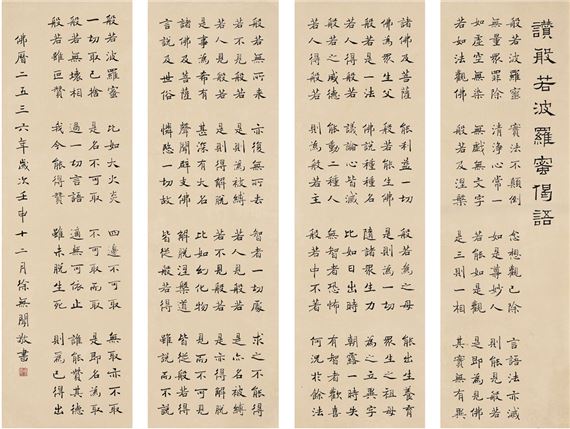 讚般若波羅蜜偈語
般若波羅蜜 實法不顛倒 念想觀已除 言語法亦滅
無量眾罪除 清淨心常一 如是尊妙人 則能見般若
如虛空無染 無戲無文字 若能如是觀 是即為見佛
若如法觀佛 般若及涅槃 是三則一相 其實無有異
諸佛及菩薩 能利益一切 般若為之母 能出生養育
佛為眾生父 般若能生佛 是則為一切 眾生之祖母
般若是一法 佛說種種名 隨諸眾生力 為之立異字
若人得般若 議論心皆滅 比如日出時 朝露一時失
般若之威德 能動二種人 無智者恐怖 有智者歡喜
若人得般若 則為般若主 般若中不著 何況於餘法
般若無所來 亦復無所去 智者一切處 求之不能得
若不見般若 是則為被縛 若人見般若 是亦名被縛
若人見般若 是則得解脫 若不見般若 是亦得解脫
是事為希有 甚深有大名 比如幻化物 見而不可見
諸佛及菩薩 聲聞辟支佛 解脫涅槃道 皆從般若得
言說及世俗 憐愍一切故 皆從般若得 雖說而不說
般若波羅蜜 比如大火炎 四邊不可取 無取亦不取
一切取已捨 是名不可取 不可取而取 是即名為取
般若無壞相 過一切言語 適無可依止 誰能贊其德
般若雖叵贊 我今能得贊 雖未脫生死 則為已得出
佛曆二五三六年歲次壬申十二月徐無聞敬書